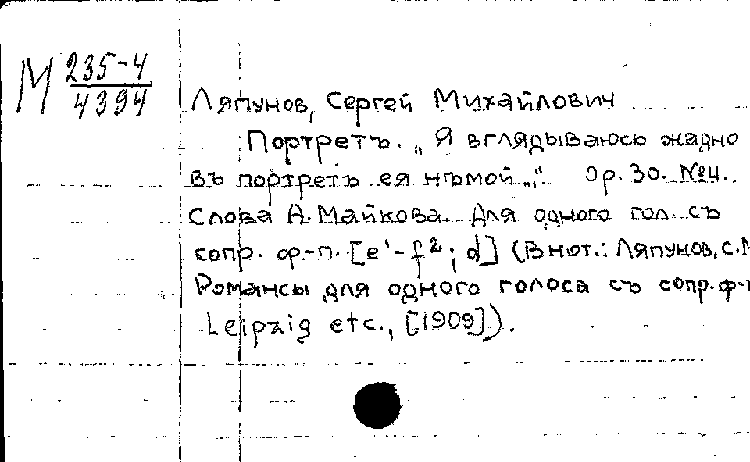 М 235-4
4394
Ляпунов, Сергей Михайлович
Портретъ. „Я вглядываюсь жадно
въ портретъ ея нѣмой...“ Op. 30. №4.
Слова А. Майкова. Для одного гол. съ
сопр. ф.-п. [e¹-f²; d] (В нот.: Ляпунов, С.М
Романсы для одного голоса съ сопр. ф-п
Leipzig etc., [1909]).